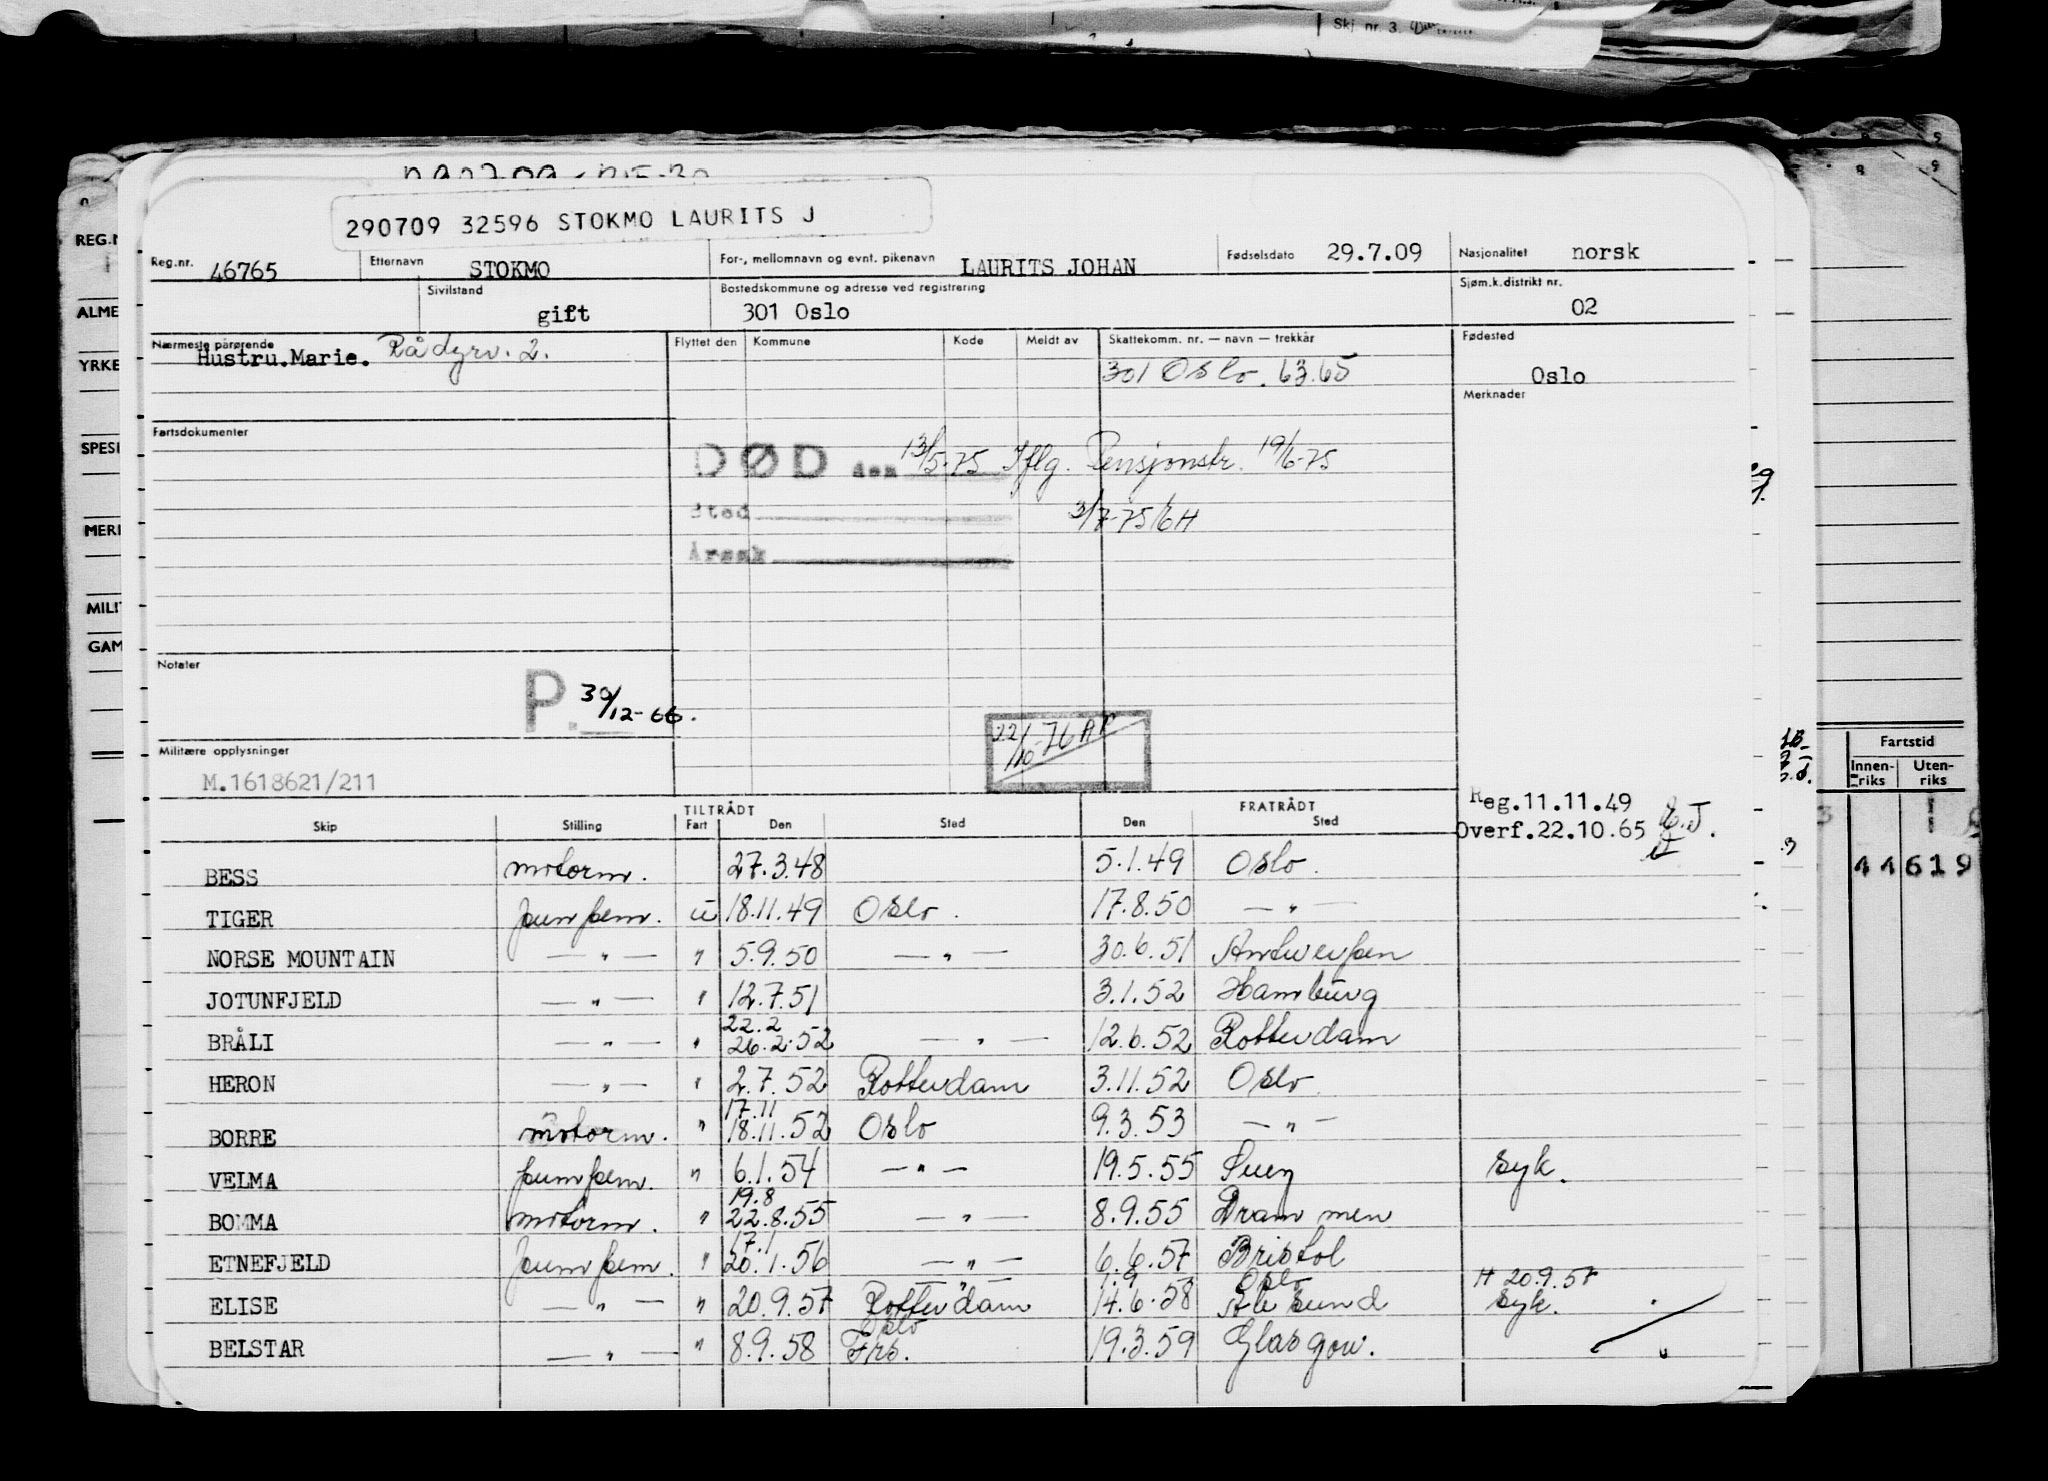 Skj. nr. 3.
290709 32596 STOKMO LAURITS J
Reg.nr. 46765 Etternavn STOKMO For-, mellomnavn og evnt. pikenavn LAURITS JOHAN Fødselsdato 29.7.09 Nasjonalitet norsk
Sivilstand gift Bostedskommune og adresse ved registrering 301 Oslo Sjøm.k.distrikt nr. 02
Nærmeste pårørende Hustru.Marie. Rådyrv. 2. Flyttet den Kommune Kode Meldt av Skattekomm. nr. — navn — trekkår Fødested
301 Oslo. 63.65 Oslo
Merknader
Fartsdokumenter
DØD den 13/5-75 Iflg. Pensjonstr. 19/6-75
Sted 3/7-75
Årsak
Notater
P. 30/12-66.
22/10-76 AP
Militære opplysninger
M.1618621/211
TILTRÅDT FRATRÅDT Reg.11.11.49
Skip Stilling Fart Den Sted Den Sted Overf.22.10.65
BESS motorm. 27.3.48 5.1.49 Oslo.
TIGER pumpem. u 18.11.49 Oslo. 17.8.50 — " —
NORSE MOUNTAIN — " — " 5.9.50 — " — 30.6.51 Antwerpen
JOTUNFJELD — " — " 12.7.51 3.1.52 Hamburg
22.2
BRÅLI — " — " 26.2.52 — " — 12.6.52 Rotterdam
HERON — " — " 2.7.52 Rotterdam 3.11.52 Oslo
17.11
BORRE motorm. " 18.11.52 Oslo 9.3.53 — " —
VELMA pumpem. " 6.1.54 — " — 19.5.55 Suez syk.
19.8
BOMMA motorm. " 22.8.55 — " — 8.9.55 Drammen
17.1
ETNEFJELD pumpem. " 20.1.56 — " — 6.6.57 Bristol
— " — 1.9 Oslo H 20.9.57
ELISE — " — " 20.9.57 Rotterdam 14.6.58 Ålesund syk.
Oslo
BELSTAR — " — " 8.9.58 Frs. 19.3.59 Glasgow.
REG.N
ALME
YRKE
SPESI
MERK
MILIT
GAM
Fartstid
Innen-riks Uten-riks
44 619